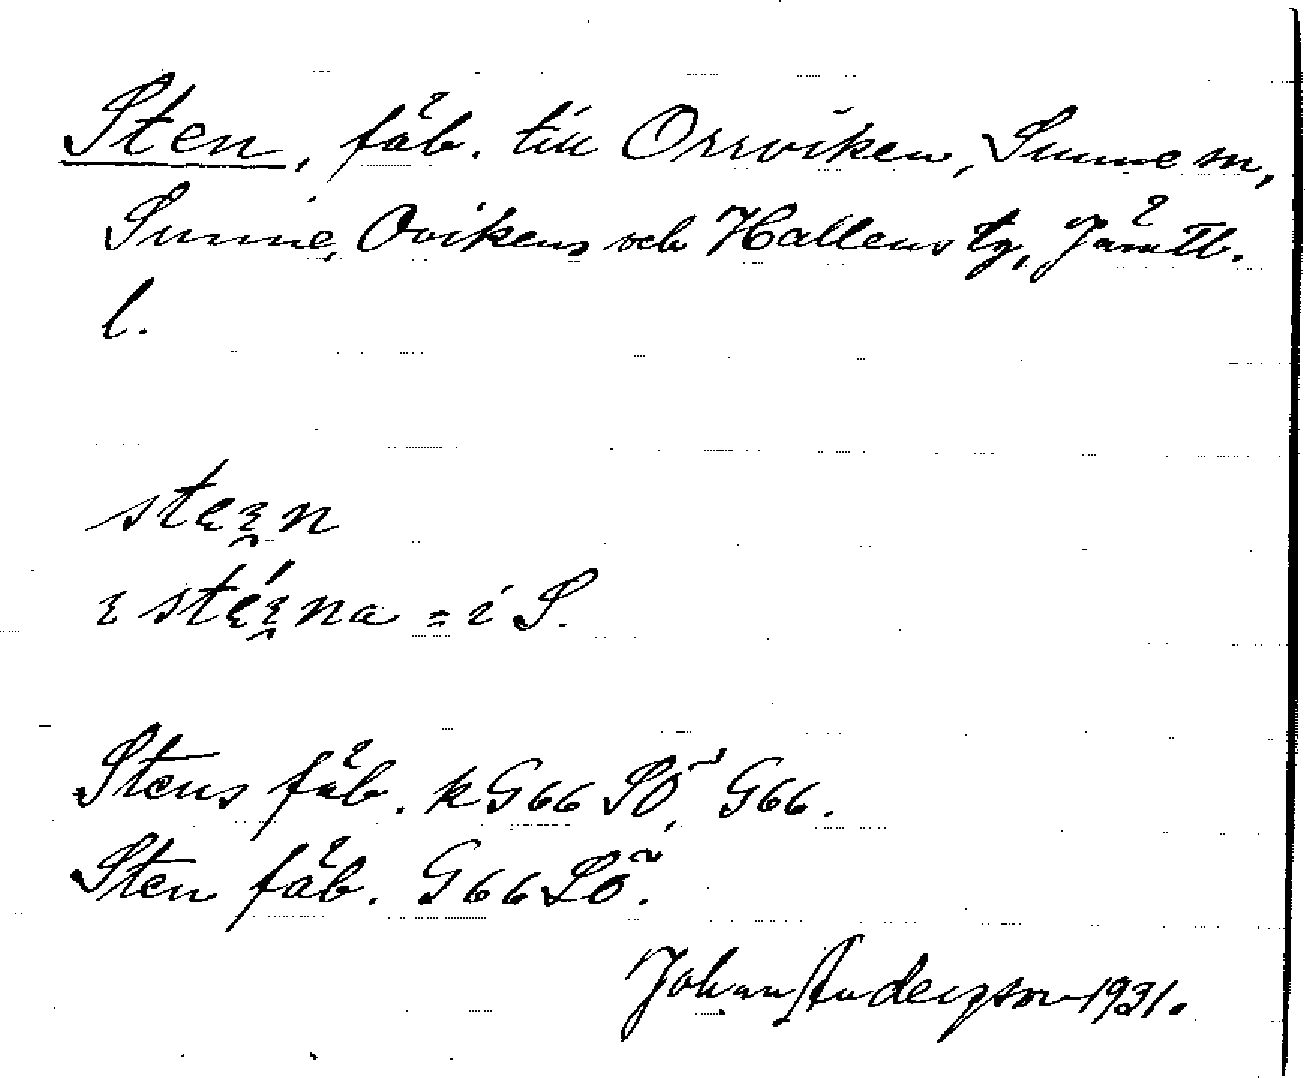 Sten, fäb. till Orrviken, Sunne sn,
Sunne, Ovikens och Hallens tg, Jämtl.
l.
i S.
Stens fäb. k G66 SÖ, G66.
Sten fäb. G66 SÖ.
Johan Anderzson 1931.